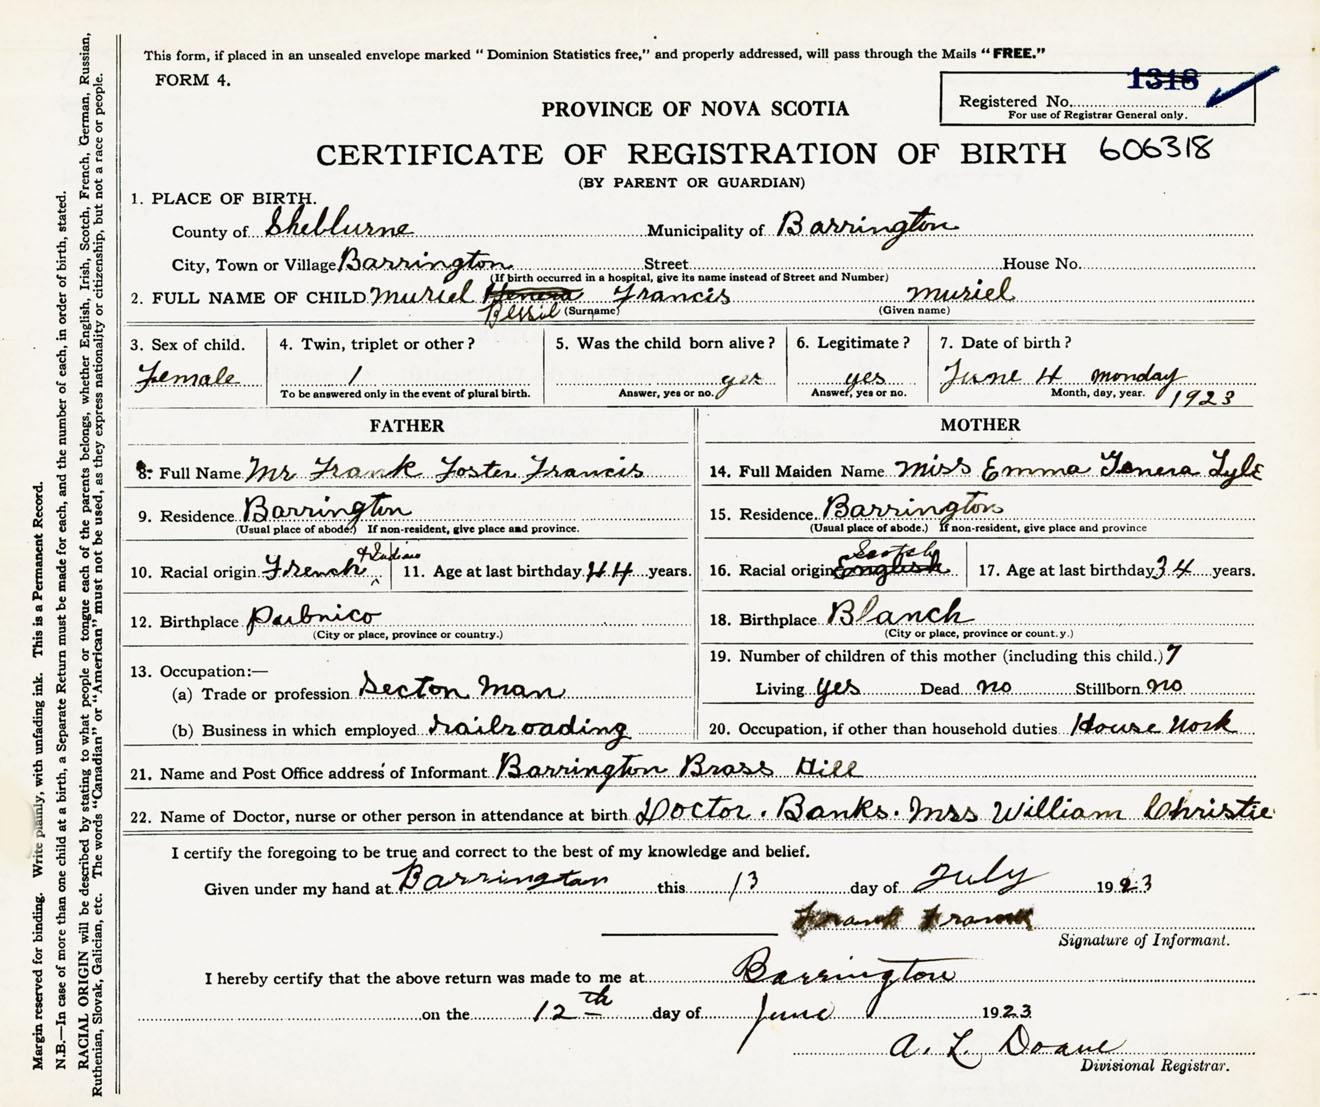 This form, if placed in an unsealed envelope marked “Dominion Statistics free,” and properly addressed, will pass through the Mails “FREE.”
FORM 4.
1318
Registered No.
For use of Registrar General only.
PROVINCE OF NOVA SCOTIA
CERTIFICATE OF REGISTRATION OF BIRTH 606318
(BY PARENT OR GUARDIAN)
1. PLACE OF BIRTH.
County of Shelburne Municipality of Barrington
City, Town or Village Barrington Street House No.
(If birth occurred in a hospital, give its name instead of Street and Number)
2. FULL NAME OF CHILD Muriel Francis Muriel
(Surname) (Given name)
3. Sex of child. 4. Twin, triplet or other? 5. Was the child born alive? 6. Legitimate? 7. Date of birth?
Female 1 yes yes June 4 Monday
To be answered only in the event of plural birth. Answer, yes or no. Answer, yes or no. Month, day, year. 1923
FATHER
8. Full Name Mr Frank Foster Francis
9. Residence Barrington
(Usual place of abode.) If non-resident, give place and province.
& Indian
10. Racial origin French 11. Age at last birthday 44 years.
12. Birthplace Pubnico
(City or place, province or country.)
13. Occupation:—
(a) Trade or profession Secton Man
(b) Business in which employed railroading
MOTHER
14. Full Maiden Name Miss Emma Lyle
15. Residence Barrington
(Usual place of abode.) If non-resident, give place and province
Scotch
16. Racial origin English 17. Age at last birthday 34 years.
18. Birthplace Blanch
(City or place, province or count.y.)
19. Number of children of this mother (including this child.) 7
Living yes Dead no Stillborn no
20. Occupation, if other than household duties House Work
21. Name and Post Office address of Informant Barrington Brass Hill
22. Name of Doctor, nurse or other person in attendance at birth Doctor. Banks. Mrs William Christie
I certify the foregoing to be true and correct to the best of my knowledge and belief.
Given under my hand at Barrington this 13 day of July 1923
Frank
Signature of Informant.
I hereby certify that the above return was made to me at Barrington
on the 12th day of June 1923
A. L. Doane
Divisional Registrar.
Margin reserved for binding. Write plainly, with unfading ink. This is a Permanent Record.
N.B.—In case of more than one child at a birth, a Separate Return must be made for each, and the number of each, in order of birth, stated.
RACIAL ORIGIN will be described by stating to what people or tongue each of the parents belongs, whether English, Irish, Scotch, French, German, Russian,
Ruthenian, Slovak, Galician, etc. The words “Canadian” or “American” must not be used, as they express nationality or citizenship, but not a race or people.